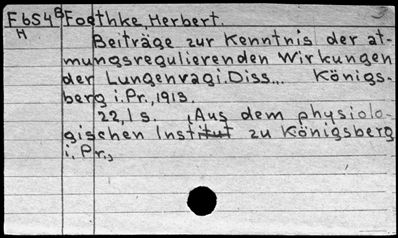 F6S4B Foethke, Herbert.
H
Beiträge zur Kenntnis der at-
mungsregulierenden Wirkungen
der Lungenvagi. Diss... Königs-
berg i. Pr., 1913.
22,1 s. (Aus dem physiolo-
gischen Institut zu Königsberg
i. Pr.,